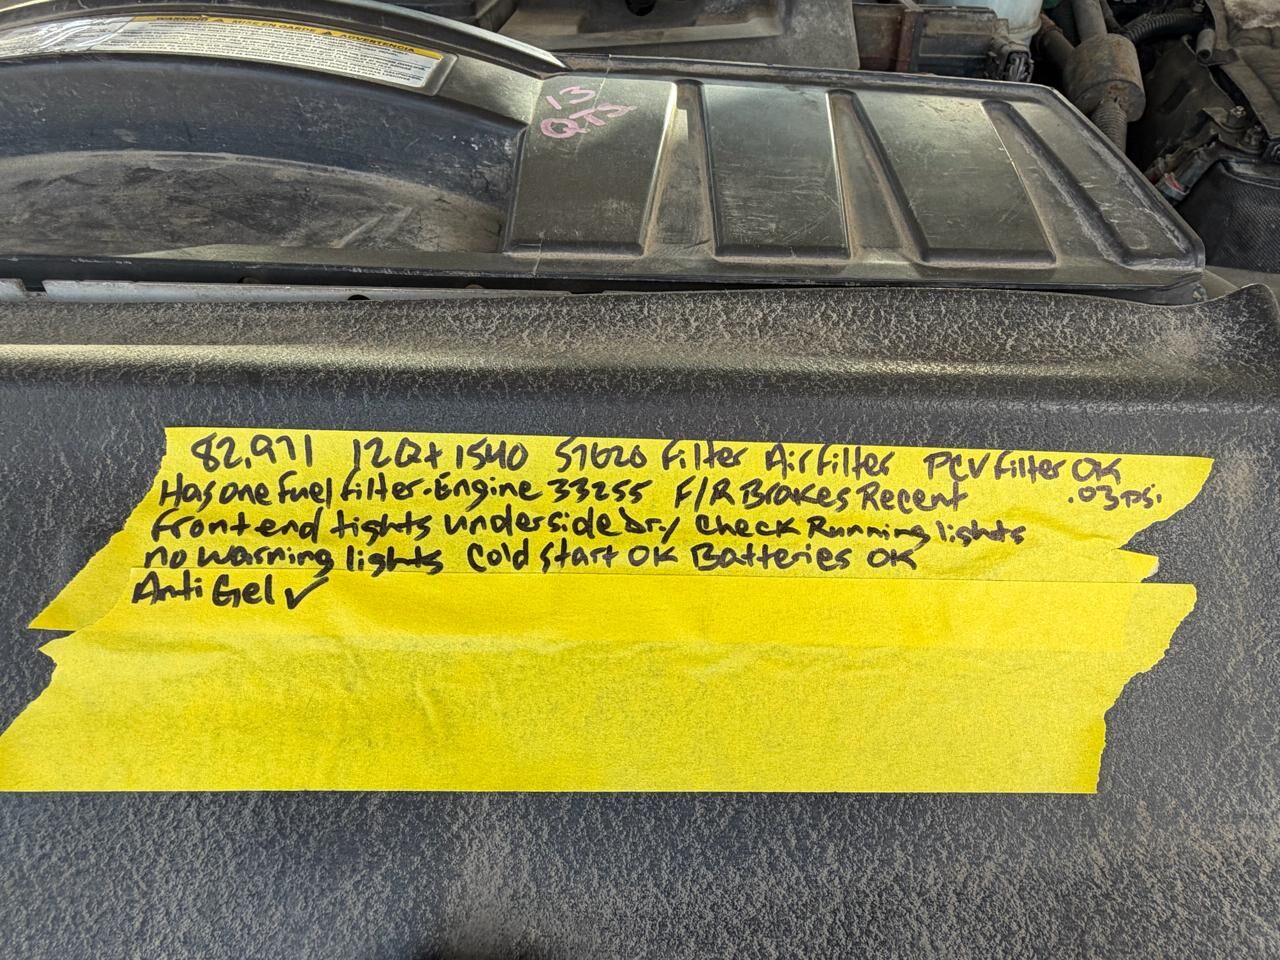 WARNING MISE EN GARDE ADVERTENCIA
13
QTS
82,971 12Qt 1540 57620 Filter Air filter PCV Filter OK
.03 psi.
Has one fuel filter-Engine 33255 F/R Brakes Recent
Front end tights underside Dry Check Running lights
no warning lights Cold start OK Batteries OK
Anti Gel ✓